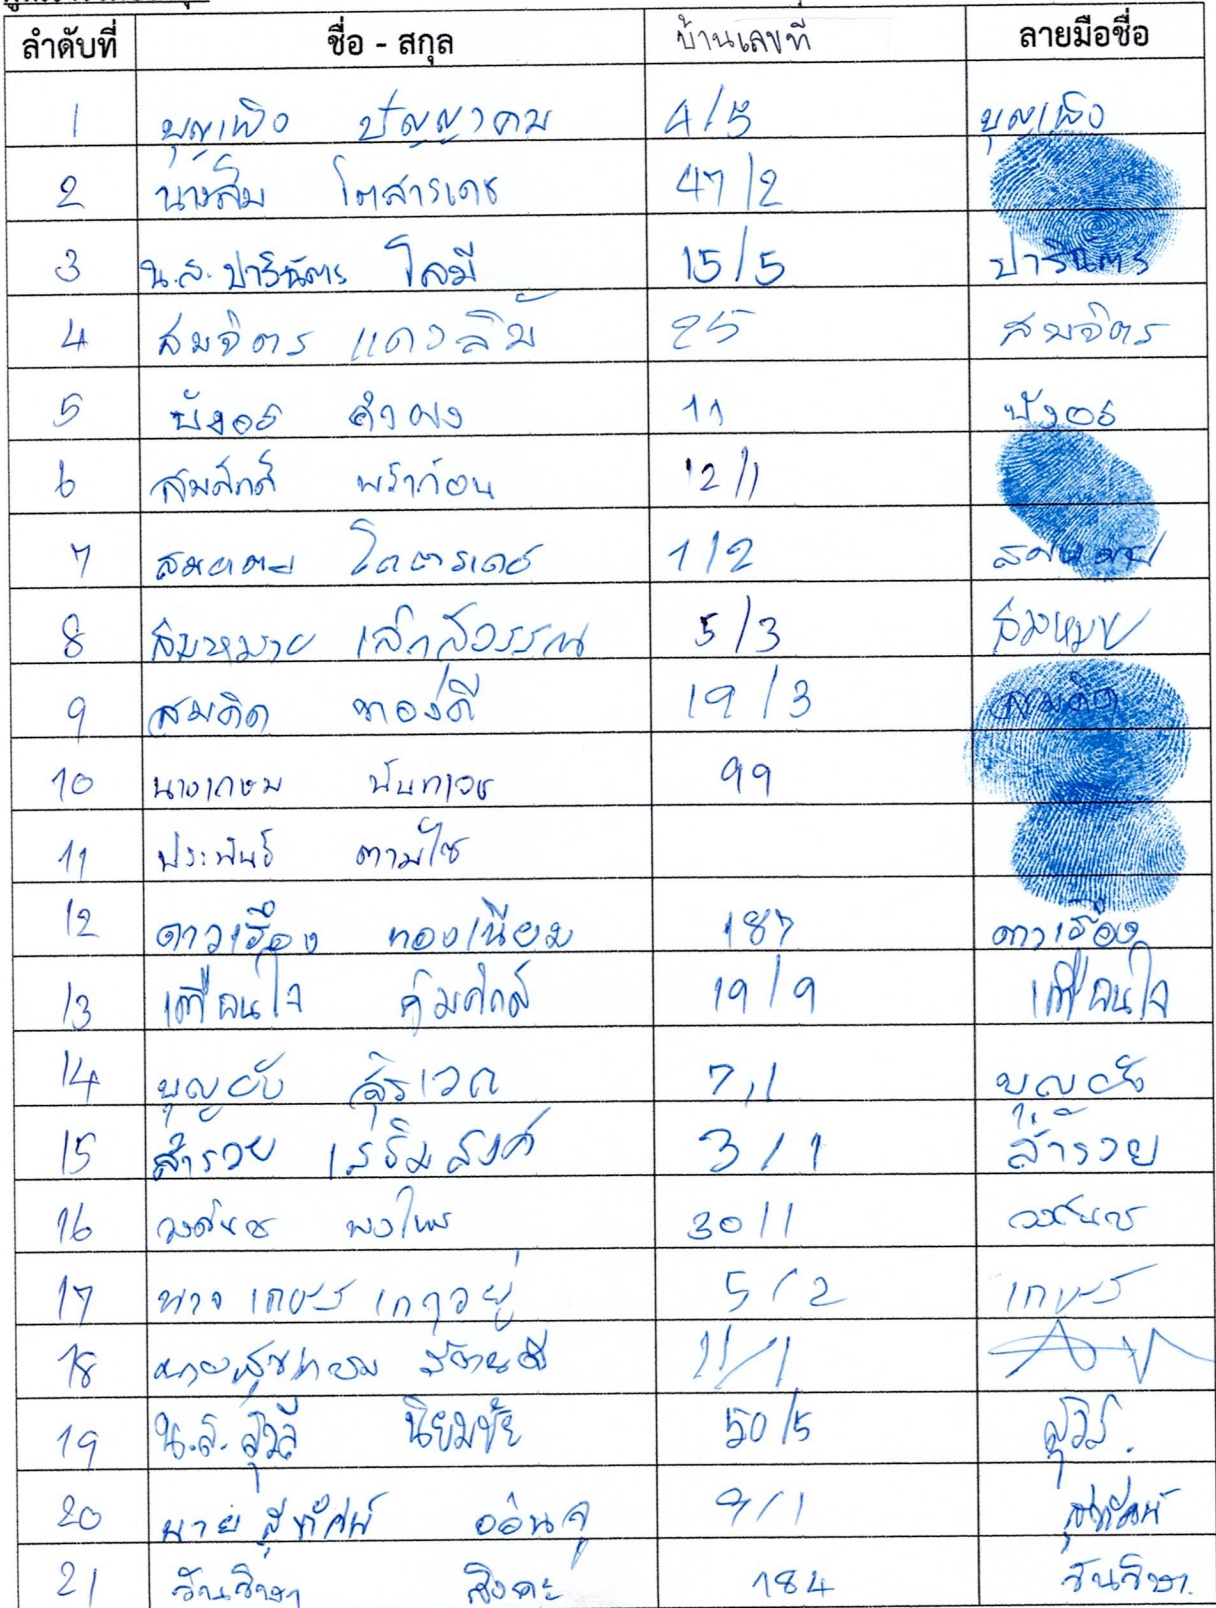 ลำดับที่ ชื่อ - สกุล บ้านเลขที่ ลายมือชื่อ
1 บุญเพ็ง ปัญญาคม 4/5 บุญเพ็ง
2 นางสิม โตสารเดช 47/2
3 น.ส. ปาริฉัตร โสมี 15/5 ปาริฉัตร
4 สมจิตร แดงลิ้ม 25 สมจิตร
5 บังอร คำผง 11 บังอร
6 สมศักดิ์ พร้าก้อน 12/1
7 1/2
8 สมหมาย เล็กสุวรรณ 5/3 สมหมาย
9 สมคิด ทองดี 19/3 สมคิด
10 นางเกษม 99
11 ประพันธ์
12 ดาวเรือง ทองเนียม 187 ดาวเรือง
13 เตือนใจ คุ้มศักดิ์ 19/9 เตือนใจ
14 บุญยัง สุรเวค 7/1 บุญยัง
15 สำรวย เสริมสงค์ 3/1 สำรวย
16 30/1
17 เกษร 5/2 เกษร
18 11/1
19 น.ส. สุวลี นิยมชัย 50/5 สุวลี
20 นาย สุทัศน์ อ่อนจุ 9/1 สุทัศน์
21 วันวิษา สิงคะ 184 วันวิษา